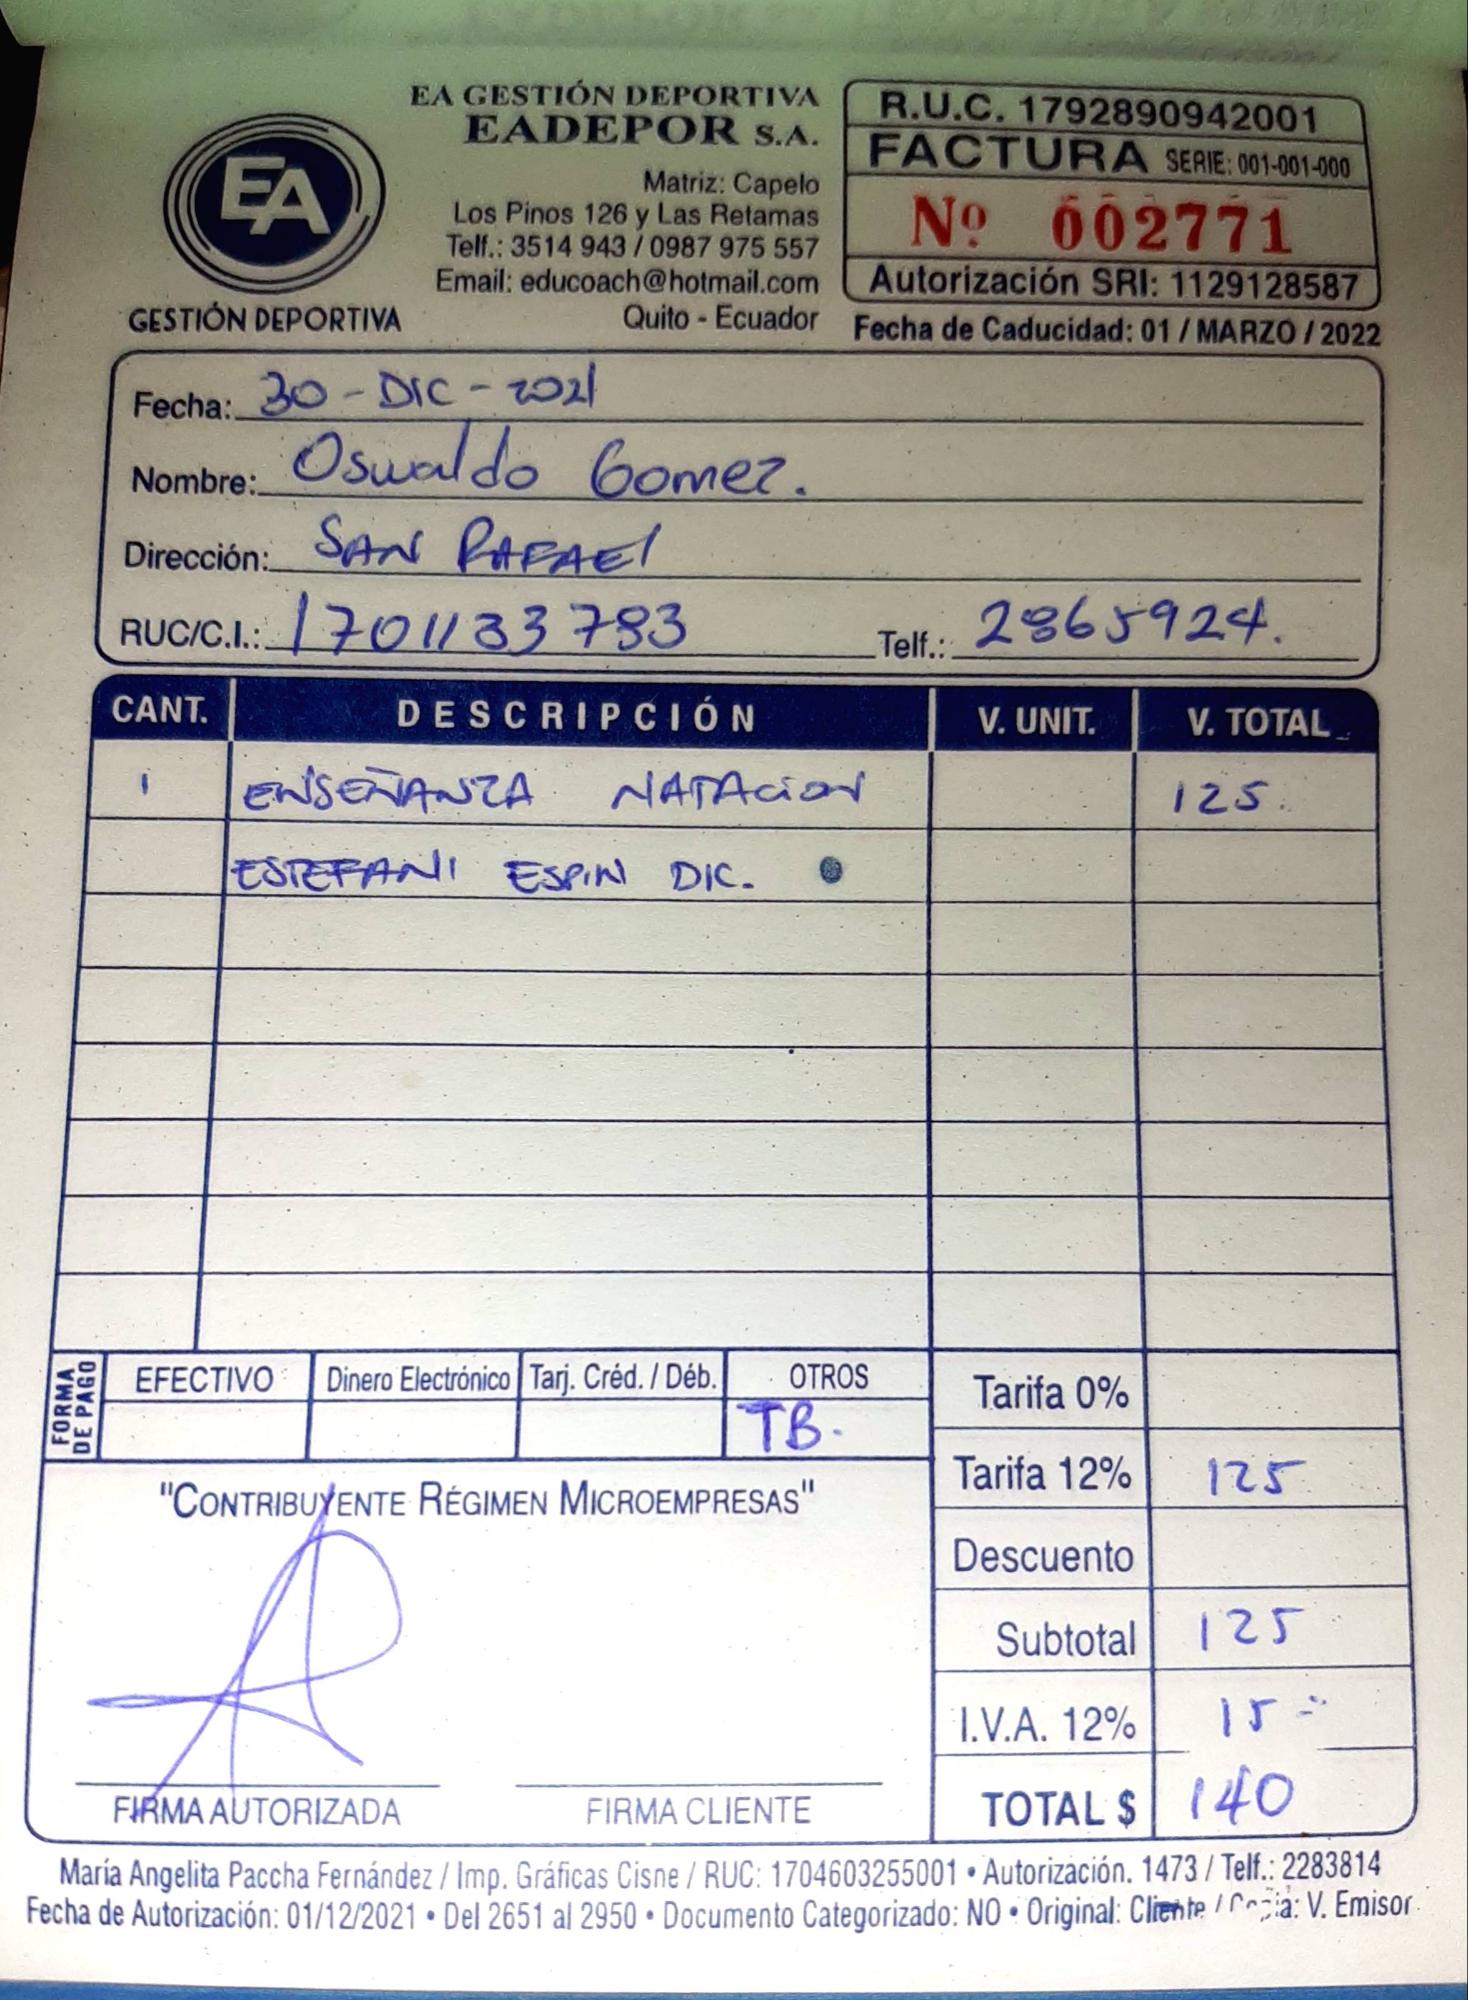 EA GESTIÓN DEPORTIVA
EADEPOR S.A.
Matriz: Capelo
Los Pinos 126 y Las Retamas
Telf.: 3514 943 / 0987 975 557
Email: educoach@hotmail.com
Quito - Ecuador
EA
GESTIÓN DEPORTIVA
R.U.C. 1792890942001
FACTURA SERIE: 001-001-000
Nº 002771
Autorización SRI: 1129128587
Fecha de Caducidad: 01 / MARZO / 2022
Fecha: 30 - DIC - 2021
Nombre: Oswaldo Gomez.
Dirección: SAN RAFAEl
RUC/C.I.: 1701133783 Telf.: 2865924.
CANT. DESCRIPCIÓN V. UNIT. V. TOTAL
1 ENSEÑANZA NATACION 125.
ESTEFANI ESPIN DIC.
FORMA DE PAGO
EFECTIVO Dinero Electrónico Tarj. Créd. / Déb. OTROS
TB.
Tarifa 0%
Tarifa 12% 125
Descuento
Subtotal 125
I.V.A. 12% 15
TOTAL $ 140
"CONTRIBUYENTE RÉGIMEN MICROEMPRESAS"
FIRMA AUTORIZADA FIRMA CLIENTE
María Angelita Paccha Fernández / Imp. Gráficas Cisne / RUC: 1704603255001 • Autorización. 1473 / Telf.: 2283814
Fecha de Autorización: 01/12/2021 • Del 2651 al 2950 • Documento Categorizado: NO • Original: Cliente / Copia: V. Emisor